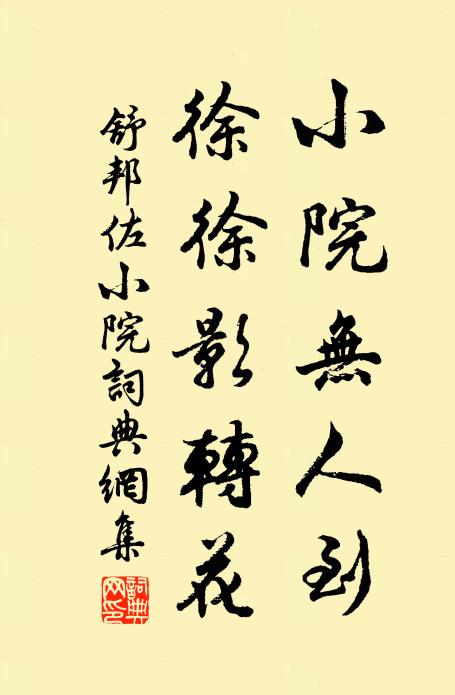 小院無人到
徐徐影轉花
舒邦佐小院詞典網集
詞典網印